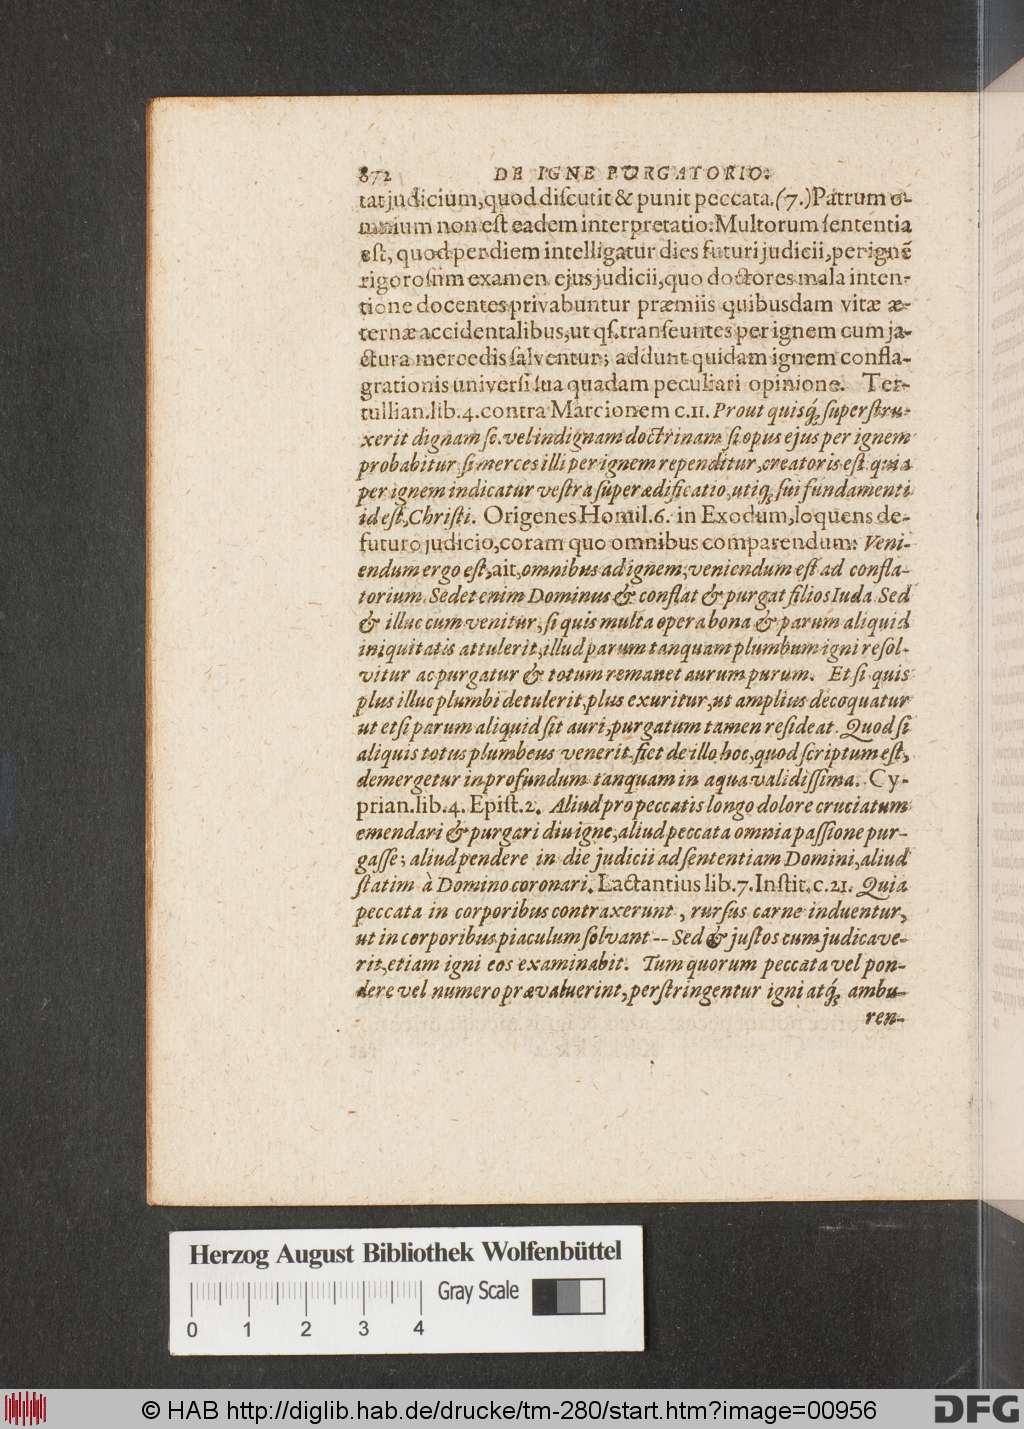 872 DE IGNE PURGATORIO.
tat judicium, quod diſcutit & punit peccata. (7.) Patrum o-
mnium non eſt eadem interpretatio: Multorum ſententia
eſt, quod per diem intelligatur dies futuri judicii, per ignẽ
rigoroſum examen ejus judicii, quo doctores mala inten-
tione docentes privabuntur præmiis quibusdam vitæ æ-
ternæ accidentalibus, ut qſ. tranſeuntes per ignem cum ja-
ctura mercedis ſalventur; addunt quidam ignem confla-
grationis univerſi ſua quadam peculiari opinione. Ter-
tullian. lib. 4. contra Marcionem c. 11. Prout quisq; ſuperſtru-
xerit dignam ſc. vel indignam doctrinam ſi opus ejus per ignem
probabitur, ſi merces illi per ignem rependitur, creatoris eſt quia
per ignem indicatur veſtra ſuperædificatio, utiq; ſui fundamenti
id eſt, Chriſti. Origenes Homil. 6. in Exodum, loquens de
futuro judicio, coram quo omnibus comparendum: Veni-
endum ergo eſt, ait, omnibus ad ignem, veniendum eſt ad confla-
torium. Sedet enim Dominus & conflat & purgat filios Iuda. Sed
& illuc cum venitur, ſi quis multa opera bona & parum aliquid
iniquitatis attulerit, illud parum tanquam plumbum igni reſol-
vitur ac purgatur & totum remanet aurum purum. Et ſi quis
plus illuc plumbi detulerit, plus exuritur, ut amplius decoquatur
ut etſi parum aliquid ſit auri, purgatum tamen reſideat. Quod ſi
aliquis totus plumbeus venerit, fiet de illo hoc, quod ſcriptum eſt,
demergetur in profundum tanquam in aqua validiſſima. Cy-
prian. lib. 4. Epiſt. 2. Aliud pro peccatis longo dolore cruciatum
emendari & purgari diu igne, aliud peccata omnia paſſione pur-
gaſſe; aliud pendere in die judicii ad ſententiam Domini, aliud
ſtatim à Domino coronari. Lactantius lib. 7. Inſtit. c. 21. Quia
peccata in corporibus contraxerunt, rurſus carne induentur,
ut in corporibus piaculum ſolvant -- Sed & juſtos cum judicave-
rit, etiam igni eos examinabit. Tum quorum peccata vel pon-
dere vel numero prævaluerint, perſtringentur igni atq; ambu-
ren-
Herzog August Bibliothek Wolfenbüttel
Gray Scale
0 1 2 3 4
© HAB http://diglib.hab.de/drucke/tm-280/start.htm?image=00956 DFG